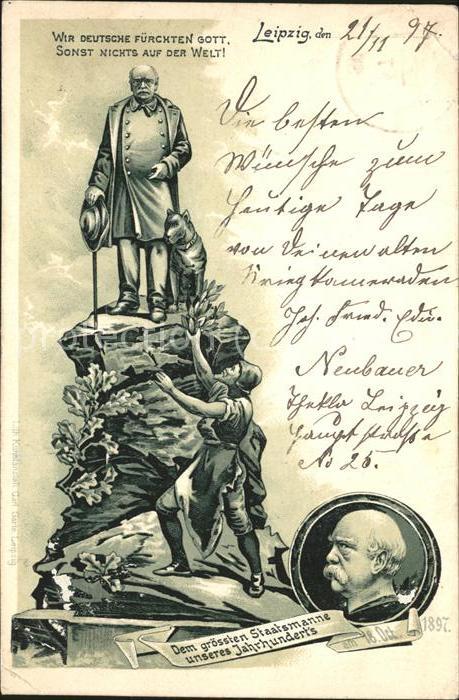 WIR DEUTSCHE FÜRCHTEN GOTT,
SONST NICHTS AUF DER WELT!
Leipzig, den 21/11 97.
Die besten
Wünsche zum
heutige Tage
von Deinen alten
Kriegskameraden
Joh. Fried. Edu.
Neubauer
Thekla Leipzig
Hauptstraße
No 25.
Dem grössten Staatsmanne
unseres Jahrhunderts
am 18. Oct. 1897.